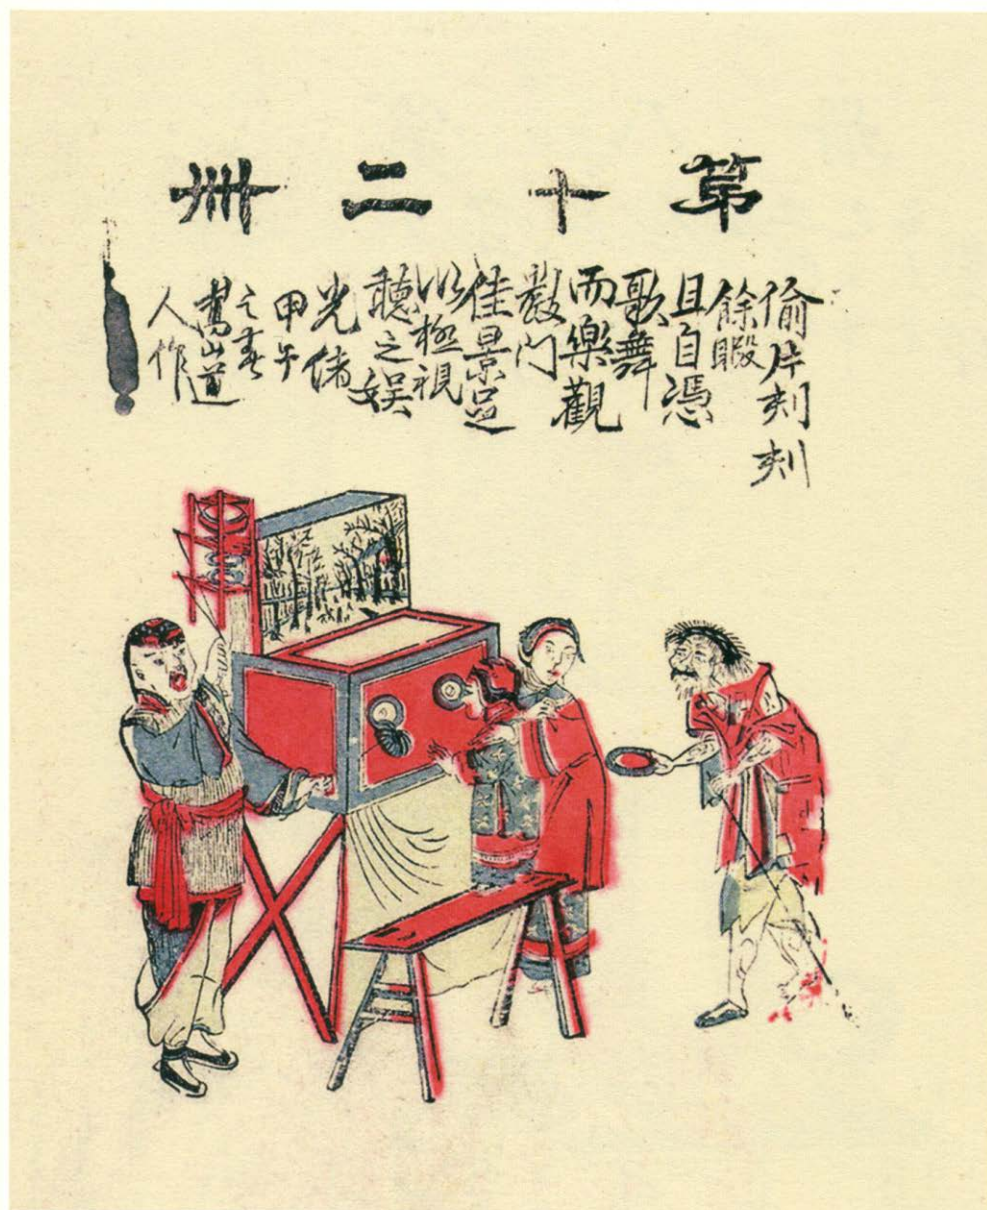 第十二冊
偷片刻刻
餘暇
且自憑
歌舞
而樂觀
數门
佳景足
以極視
聽之娱
光緒
甲午
之春
山道
人作